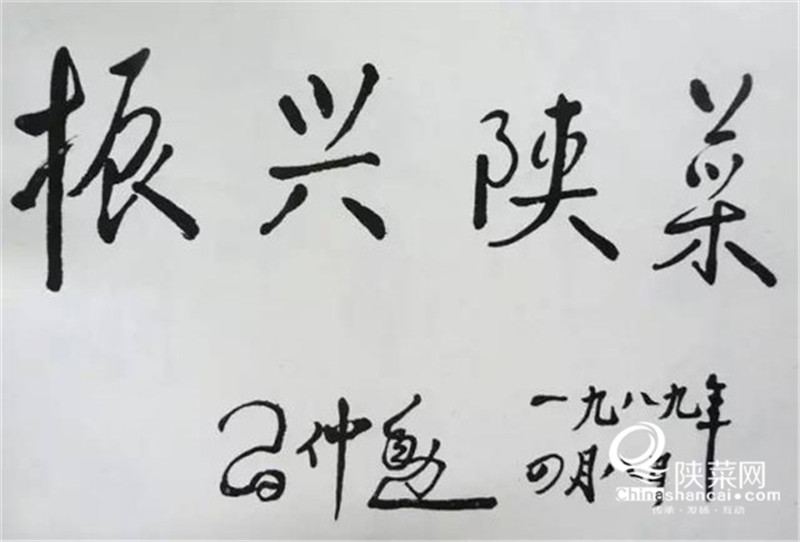 振兴陕菜
習仲勛
一九八九年
四月八日
陕菜网
Chinashancai.com
传承·发扬·互动